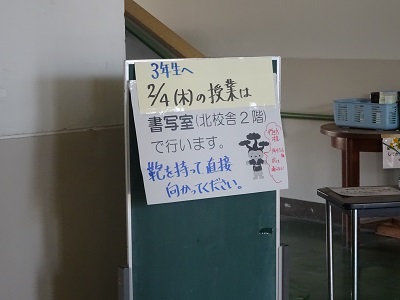 3年生へ
2/4(木)の授業は
書写室(北校舎2階)
で行います。
靴を持って直接
向かってください。